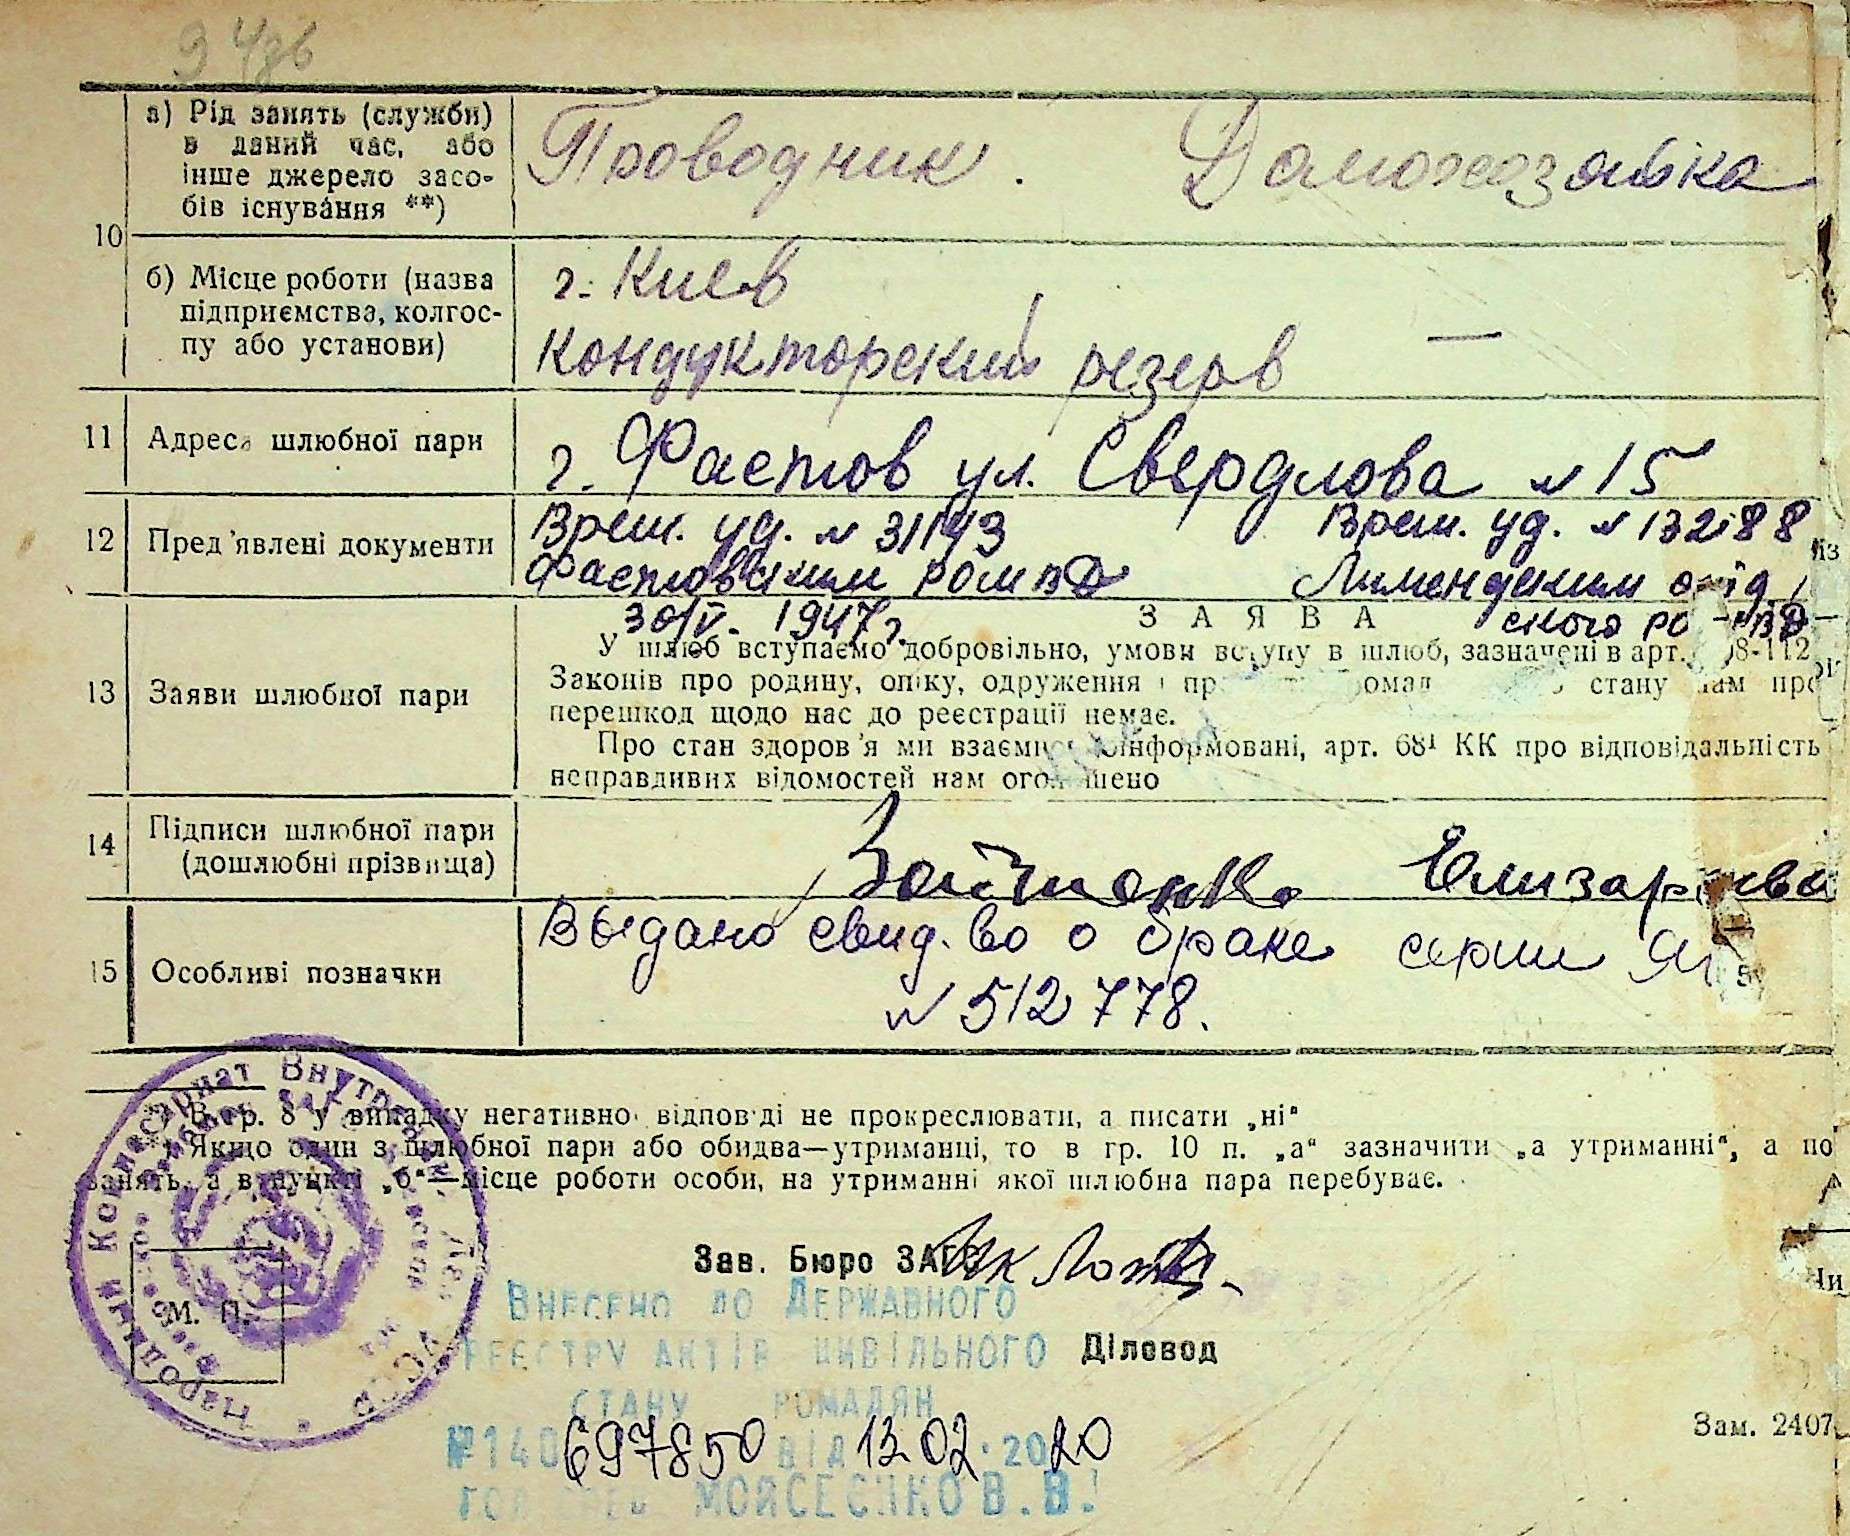 а) Рід занять (служби)
в даний час, або
інше джерело засо-
бів існування **)
Проводник. Домохозяйка
10
б) Місце роботи (назва
підприємства, колгос-
пу або установи)
г. Киев
Кондукторский резерв —
11 Адреса шлюбної пари
г. Фастов ул. Свердлова № 15
12 Пред'явлені документи
Врем. уд. № 31143 Врем. уд. № 13288
Фастовским РОМВД
30/IV. 1947 г.
ского РО МВД
13 Заяви шлюбної пари
ЗАЯВА
У шлюб вступаємо добровільно, умови вступу в шлюб, зазначені в арт. 108-112
Законів про родину, опіку, одруження стану нам
перешкод щодо нас до реєстрації немає.
Про стан здоров'я ми взаємно поінформовані, арт. 68¹ КК про відповідальність
неправдивих відомостей нам оголошено
14 Підписи шлюбної пари
(дошлюбні прізвища)
Елизарова
15 Особливі позначки
Выдано свид-во о браке серии
№ 512778.
В гр. 8 у випадку негативної відповіді не прокреслювати, а писати „ні“
Якщо один з шлюбної пари або обидва—утриманці, то в гр. 10 п. „а“ зазначити „а утриманні“, а по
занять, а в пункті „б“—місце роботи особи, на утриманні якої шлюбна пара перебуває.
Народный Комиссариат Внутренних Дел УССР
М. П.
Зав. Бюро ЗАГС
Внесено до Державного
реєстру актів цивільного
Діловод
стану громадян
№ 140 697850 від 13.02.2020
Мойсеєнко В.В.
Зам. 2407